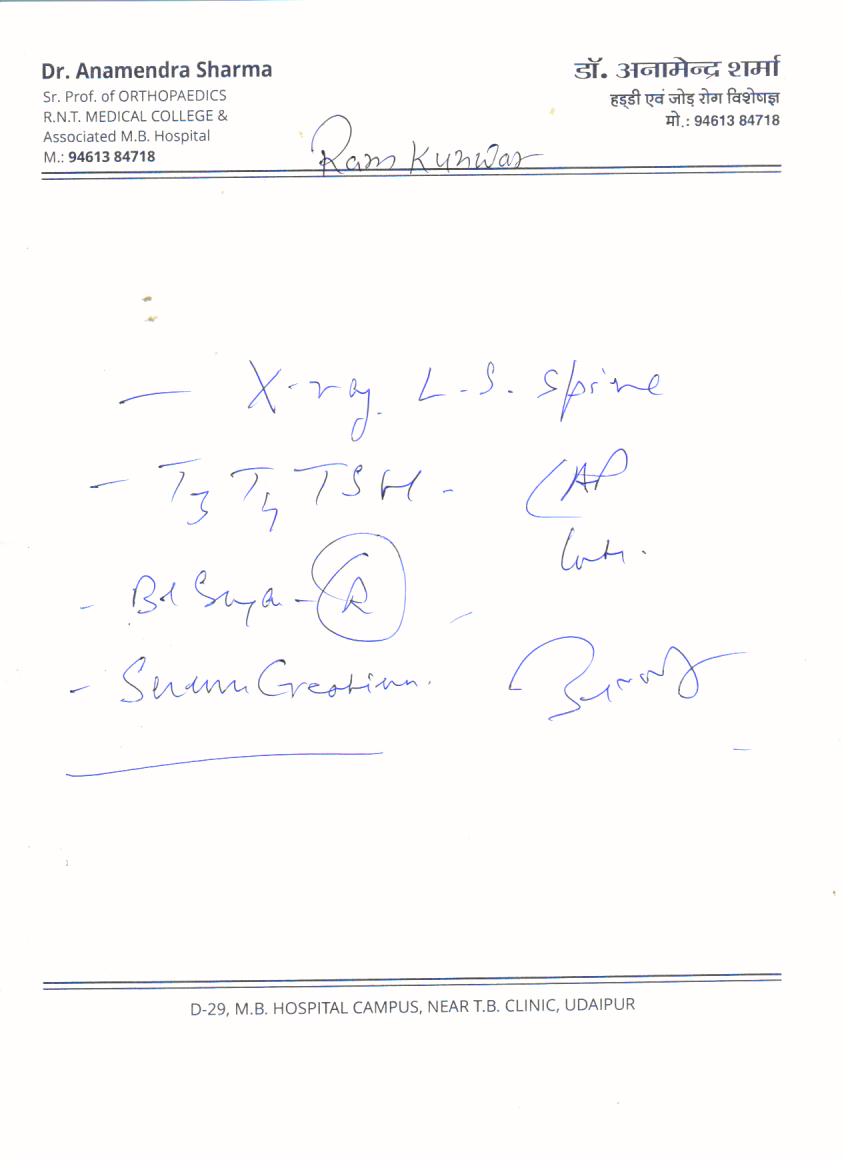 Dr. Anamendra Sharma
Sr. Prof. of ORTHOPAEDICS
R.N.T. MEDICAL COLLEGE &
Associated M.B. Hospital
M.: 94613 84718
डॉ. अनामेन्द्र शर्मा
हड्डी एवं जोड़ रोग विशेषज्ञ
मो.: 94613 84718
Ram Kunwar
— X-ray. L.S. Spine
- T3 T4 TSH - AP
Lat.
- Bd Suga - R
- Serum Creatinin.
D-29, M.B. HOSPITAL CAMPUS, NEAR T.B. CLINIC, UDAIPUR